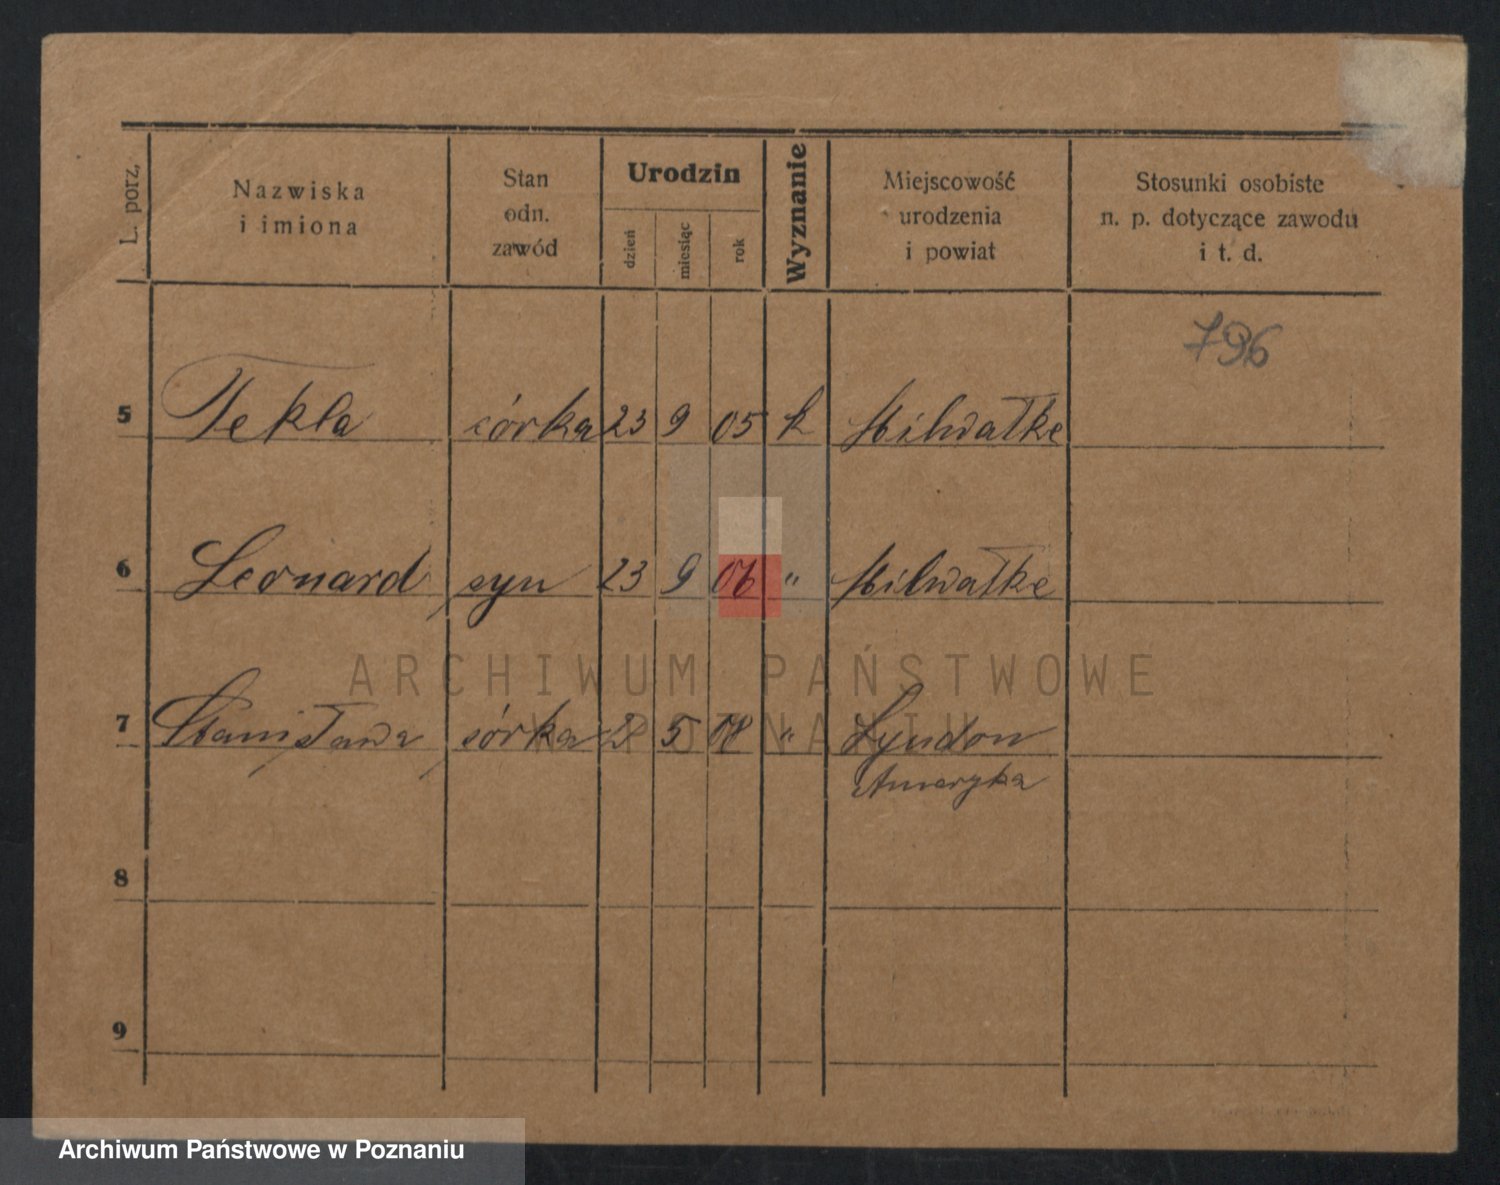 L. porz.
Nazwiska
i imiona
Stan
odn.
zawód
Urodzin
dzień
miesiąc
rok
Wyznanie
Miejscowość
urodzenia
i powiat
Stosunki osobiste
n. p. dotyczące zawodu
i t. d.
796
5 Tekla córka 23 9 05 k Milwałke
6 Leonard syn 23 9 06 " Milwałke
ARCHIWUM PAŃSTWOWE
7 Stanisława córka 2 5 08 " Lyndon
W POZNANIU
Ameryka
8
9
Archiwum Państwowe w Poznaniu